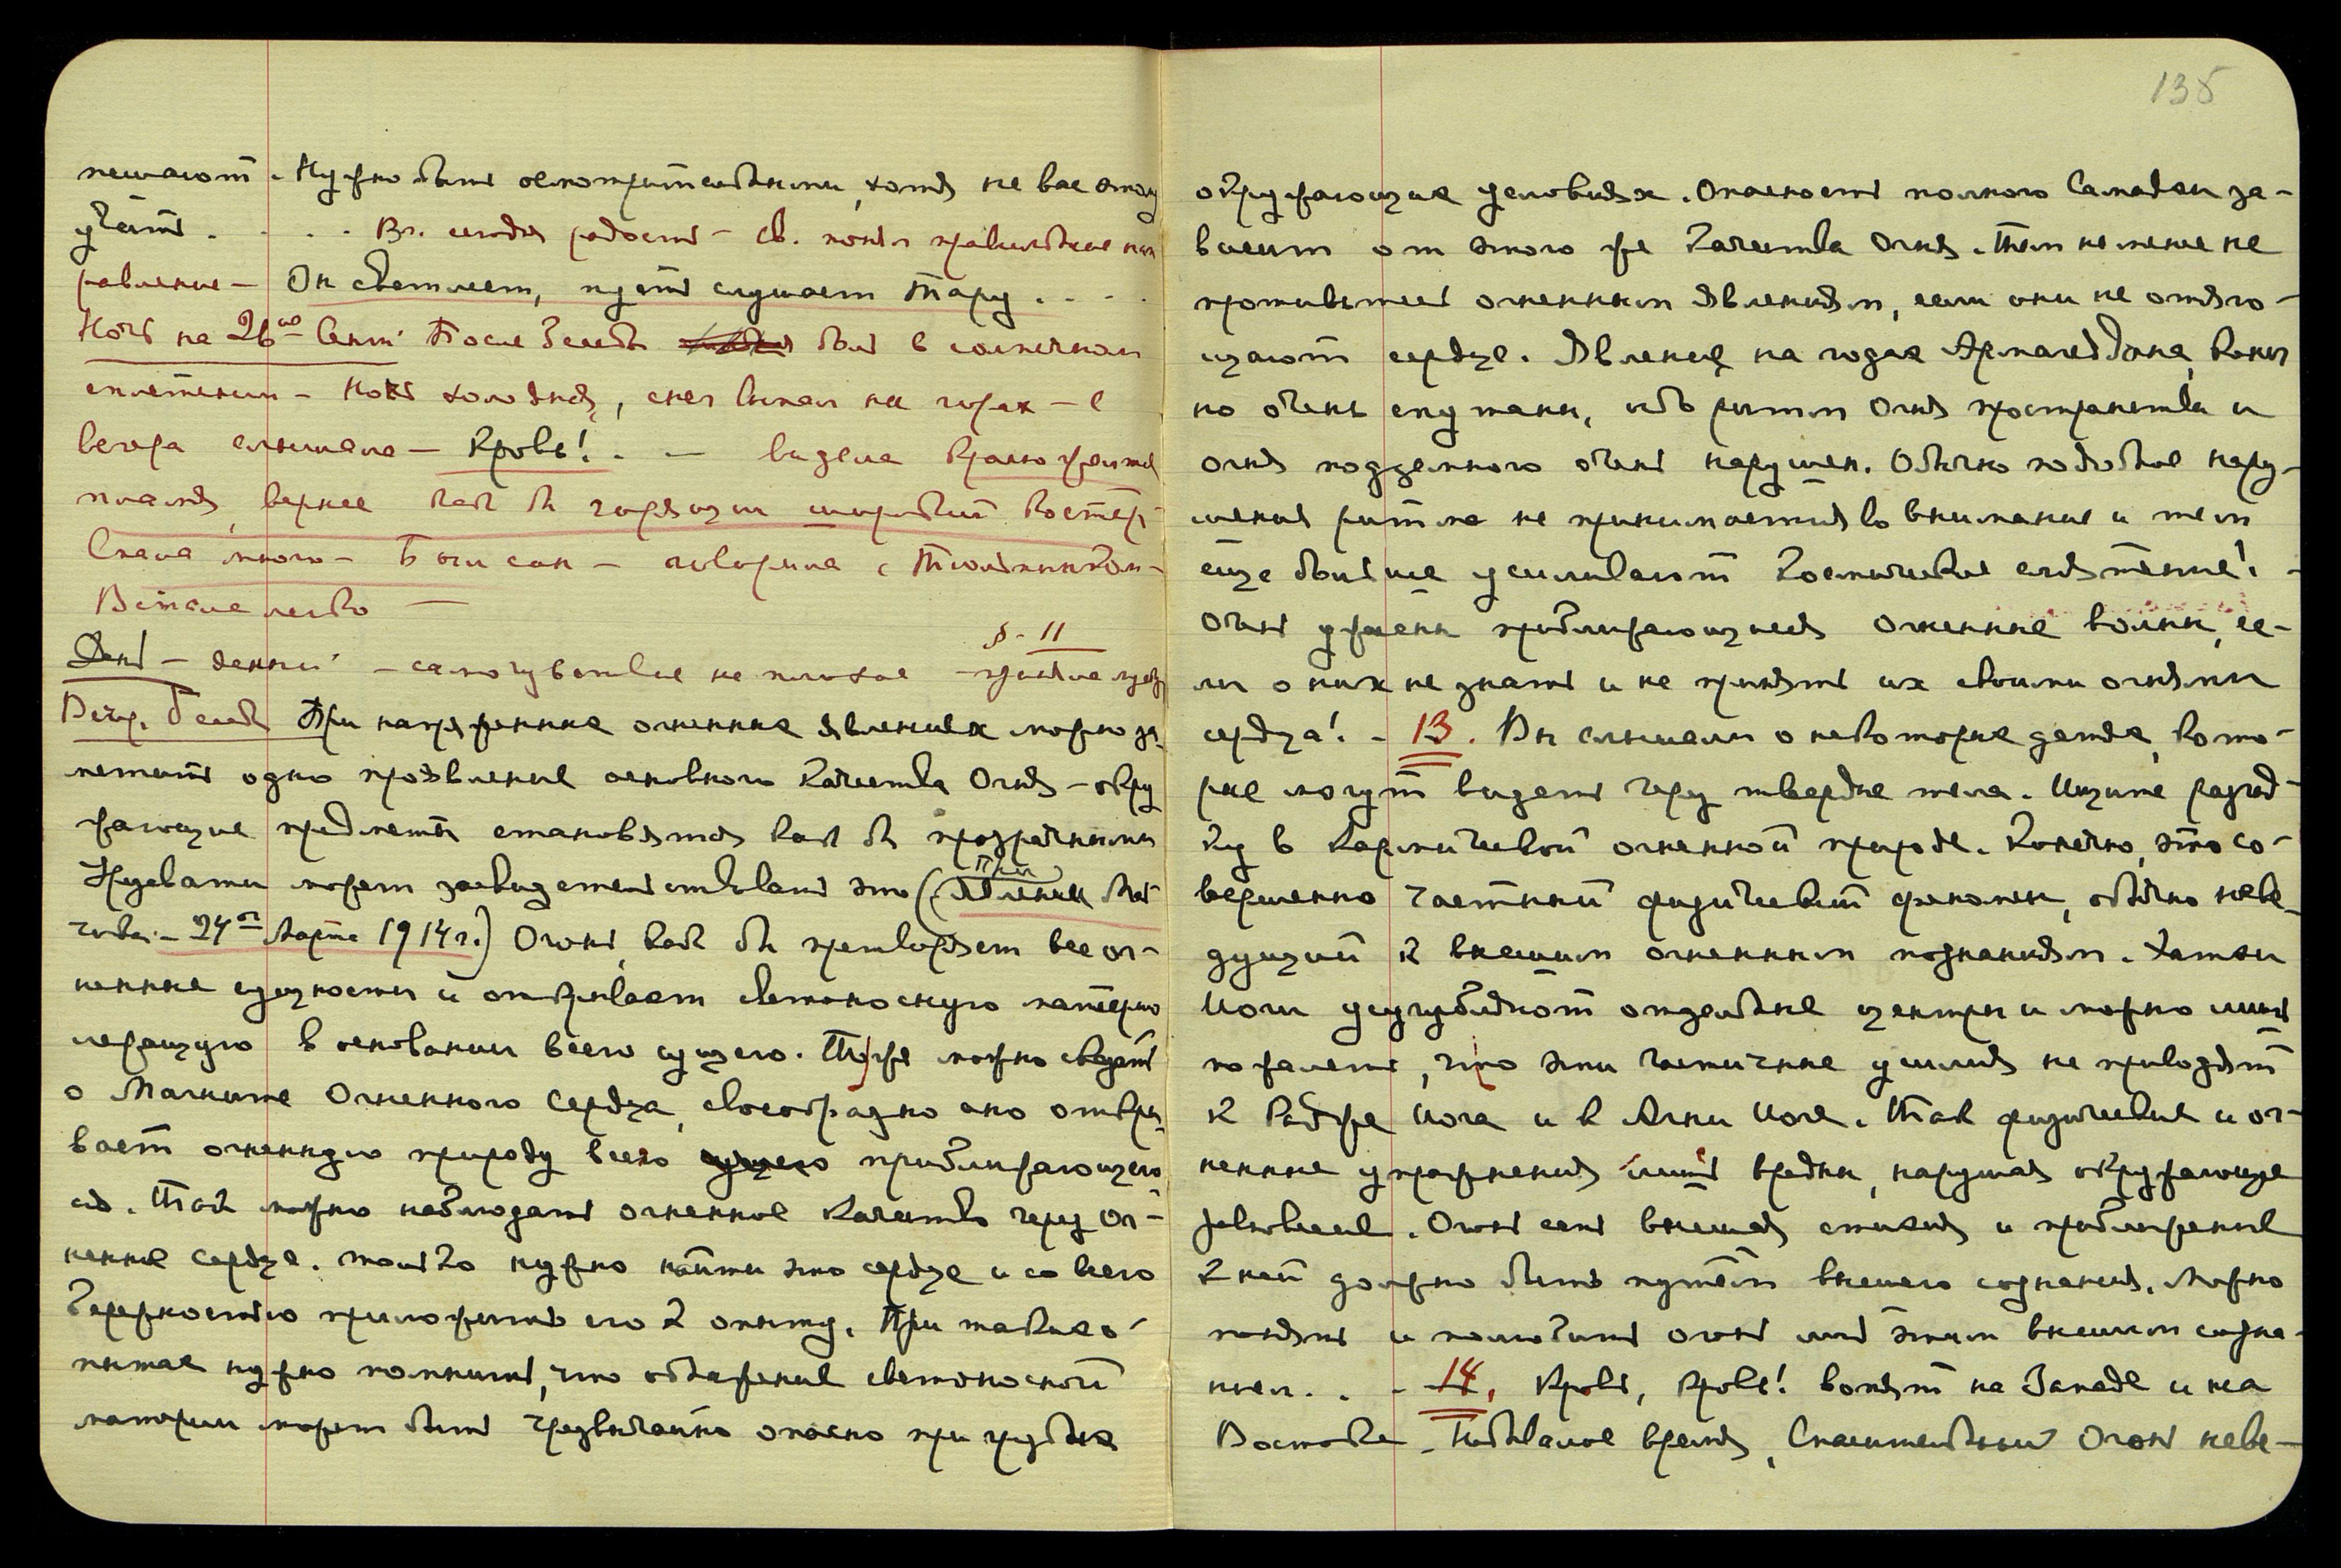 мешают. Нужно быть осмотрительными, хотя не вас этому
учить. . . . Вл. шлёт радость – Св. понял правильное нап
равление – Он светлеет, пусть слушает Тару . . . .
Ночь на 26ое Сент. После Беседы боль в солнечном
сплетении – Ночь холодная, снег выпал на горах – с
вечера слышала – Кровь! . . — видела красно-желтое
пламя, вернее как бы горящий широкий костер –
Спала много – Был сон –
Встала легко —
§ - 11
День – денной – самочувствие не плохое –
Вечер. Беседа При напряженных огненных явлениях можно за-
метить одно проявление основного качества Огня – окру
жающие предметы становятся как бы прозрачными
Урусвати может засвидетельствовать это (явлении Мы
24ое Марта 1914 г.) Огонь как бы претворяет все ог-
ненные сущности и открывает светоносную материю
лежащую в основании всего сущего. То же можно сказать
о Магните Огненного Сердца, своеобразно оно откры
вает огненную природу всего приближающего
ся. Так можно наблюдать огненное качество через ог-
ненное сердце. Только нужно найти это сердце и со всею
бережностью приложить его к опыту. При таких о-
пытах нужно помнить, что обнажение светоносной
материи может быть чрезвычайно опасно при грубых
135
окружающих условиях. Опасность полного Самадхи за-
висит от этого же качества Огня. Тем не менее не
противьтесь огненным явлениям, если они не отяго-
щают сердце. Явления на годах Армагеддона, конеч
но очень спутаны, ибо ритм Огня пространства и
огня подземного очень нарушен. Обычно подобное нару-
шение ритма не принимается во внимание и тем
еще больше усиливают космическое смятение! –
Очень ужасны приближающиеся огненные волны, ес-
ли о них не знать и не принять их своими огнями
сердца! – 13. Вы слышали о некоторых детях, кото-
рые могут видеть через твердые тела. Ищите разгад-
ку в кармической огненной природе. Конечно, это со-
вершенно частный физический феномен, обычно неве-
дущий к высшим огненным познаниям. Хатхи
Йоги усугубляют отдельные центры и можно лишь
пожалеть, что эти частичные усилия не приводят
к Раджа Йоге и к Агни Йоге. Так физические и ог-
ненные упражнения лишь вредны, нарушая окружающее
равновесие. Огонь есть высшая стихия и приближение
к ней должно быть путём высшего сознания. Можно
понять и полюбить огонь лишь этим высшим созна-
нием. . – 14. Кровь, кровь! вопят на Западе и на
Востоке. Небывалое время, Спасительный Огонь неве-